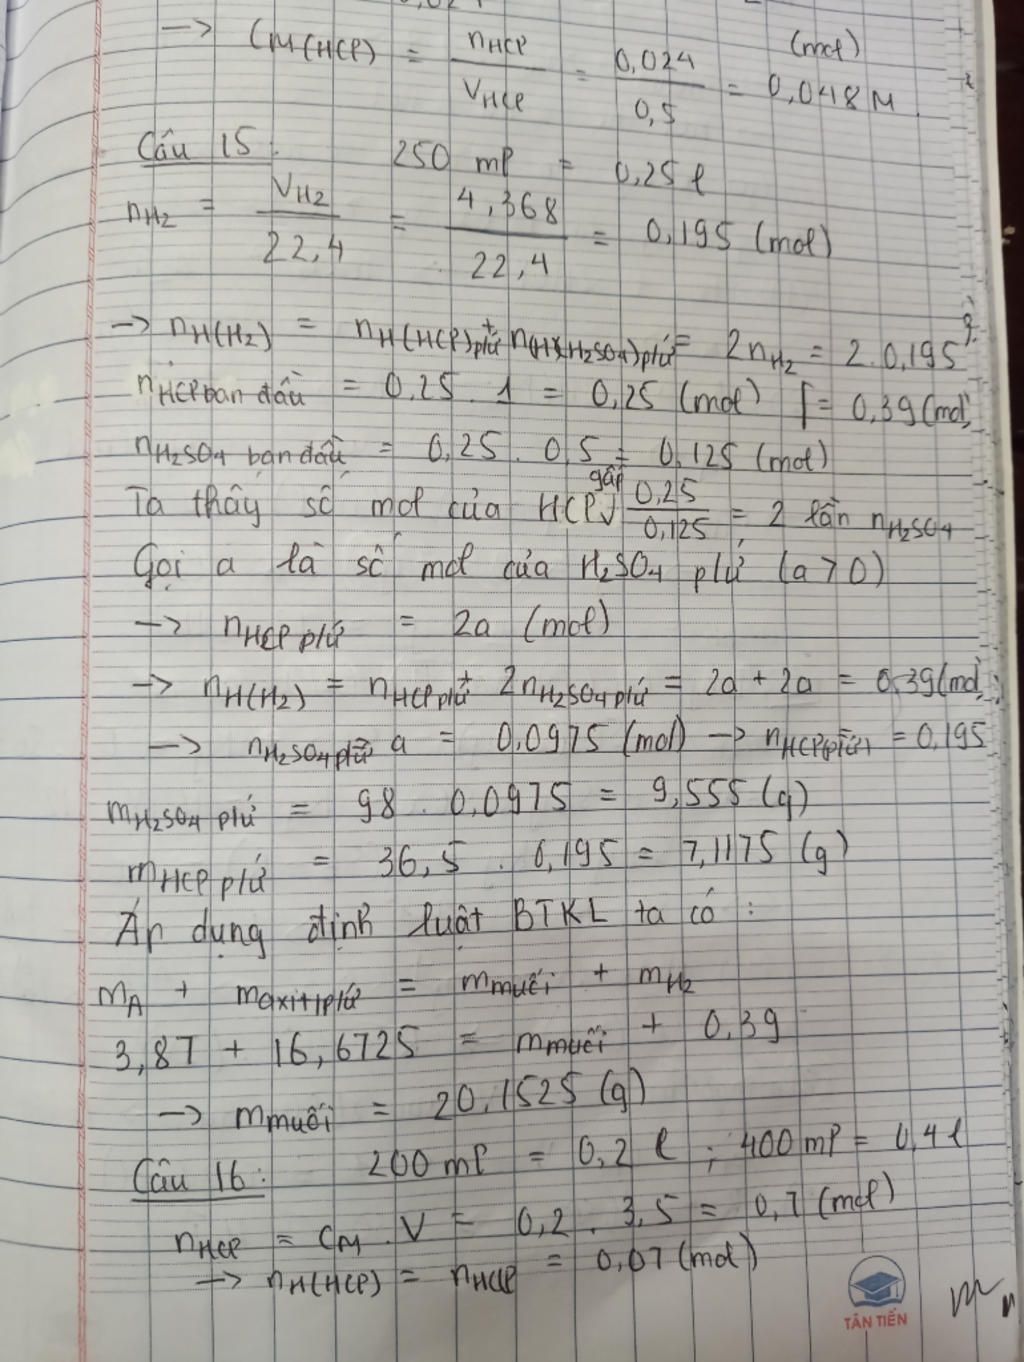 → CM(HCl) = nHCl / VHCl = 0,024 / 0,5 = 0,048 M (mol)
Câu 15: 250 ml = 0,25 l
nH2 = VH2 / 22,4 = 4,368 / 22,4 = 0,195 (mol)
→ nH(H2) = nH(HCl)plứ + n(H)(H2SO4)plứ = 2nH2 = 2.0,195
nHCl ban đầu = 0,25 . 1 = 0,25 (mol) = 0,39 (mol)
nH2SO4 ban đầu = 0,25 . 0,5 = 0,125 (mol)
Ta thấy số mol của HCl gấp 0,25 / 0,125 = 2 lần nH2SO4
Gọi a là số mol của H2SO4 plứ (a > 0)
→ nHCl plứ = 2a (mol)
→ nH(H2) = nHCl plứ + 2nH2SO4 plứ = 2a + 2a = 0,39 (mol)
→ nH2SO4 plứ a = 0,0975 (mol) → nHCl plứ = 0,195
mH2SO4 plứ = 98 . 0,0975 = 9,555 (g)
mHCl plứ = 36,5 . 0,195 = 7,1175 (g)
Áp dụng định luật BTKL ta có :
mA + maxit plứ = mmuối + mH2
3,87 + 16,6725 = mmuối + 0,39
→ mmuối = 20,1525 (g)
Câu 16: 200 ml = 0,2 l ; 400 ml = 0,4 l
nHCl = CM . V = 0,2 . 3,5 = 0,7 (mol)
→ nH(HCl) = nHCl = 0,07 (mol)
TÂN TIẾN